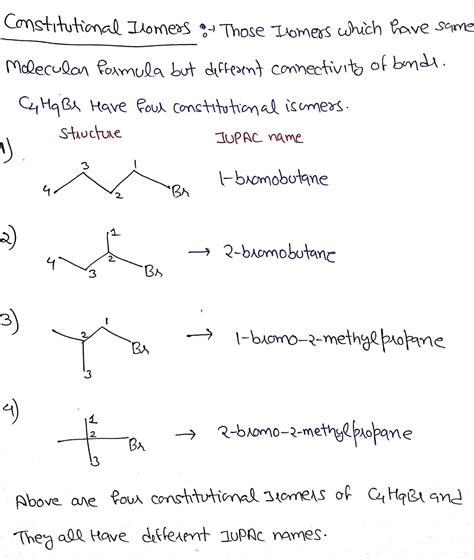 Constitutional Isomers :→ Those Isomers which have same
Molecular formula but different connectivity of bonds.
C4H9Br Have four constitutional isomers.
Structure IUPAC name
1)
3 1
4 2 Br 1-bromobutane
2)
1
4 3 2 Br → 2-bromobutane
3)
1
2 Br → 1-bromo-2-methylpropane
3
4)
1
2 Br → 2-bromo-2-methylpropane
3
Above are four constitutional Isomers of C4H9Br and
They all Have different IUPAC names.